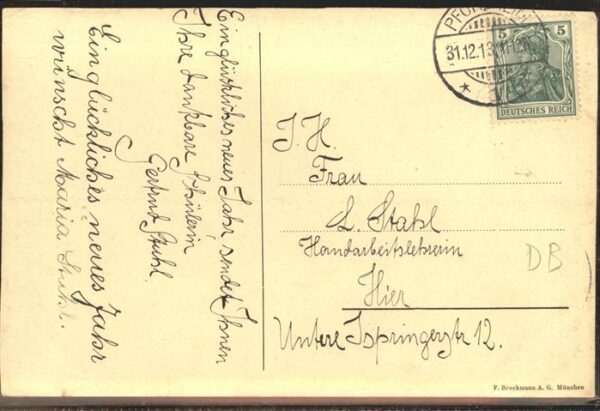 Ein glückliches neues Jahr, sendet Ihnen
Ihre dankbare Schülerin
Gertrud Stuhl.
Ein glückliches neues Jahr
wünscht Maria Stuhl.
PFORZHEIM
31.12.13
5 5
DEUTSCHES REICH
I. H.
Frau
L. Stahl
Handarbeitslehrerin
Hier
Untere Ispringerstr 12.
DB
F. Bruckmann A. G. München